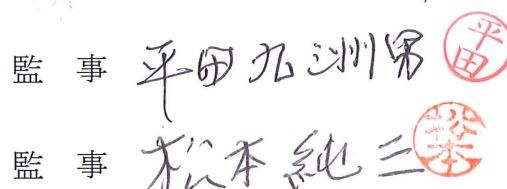 監 事 平田九洲男 平田
監 事 松本純三 松本